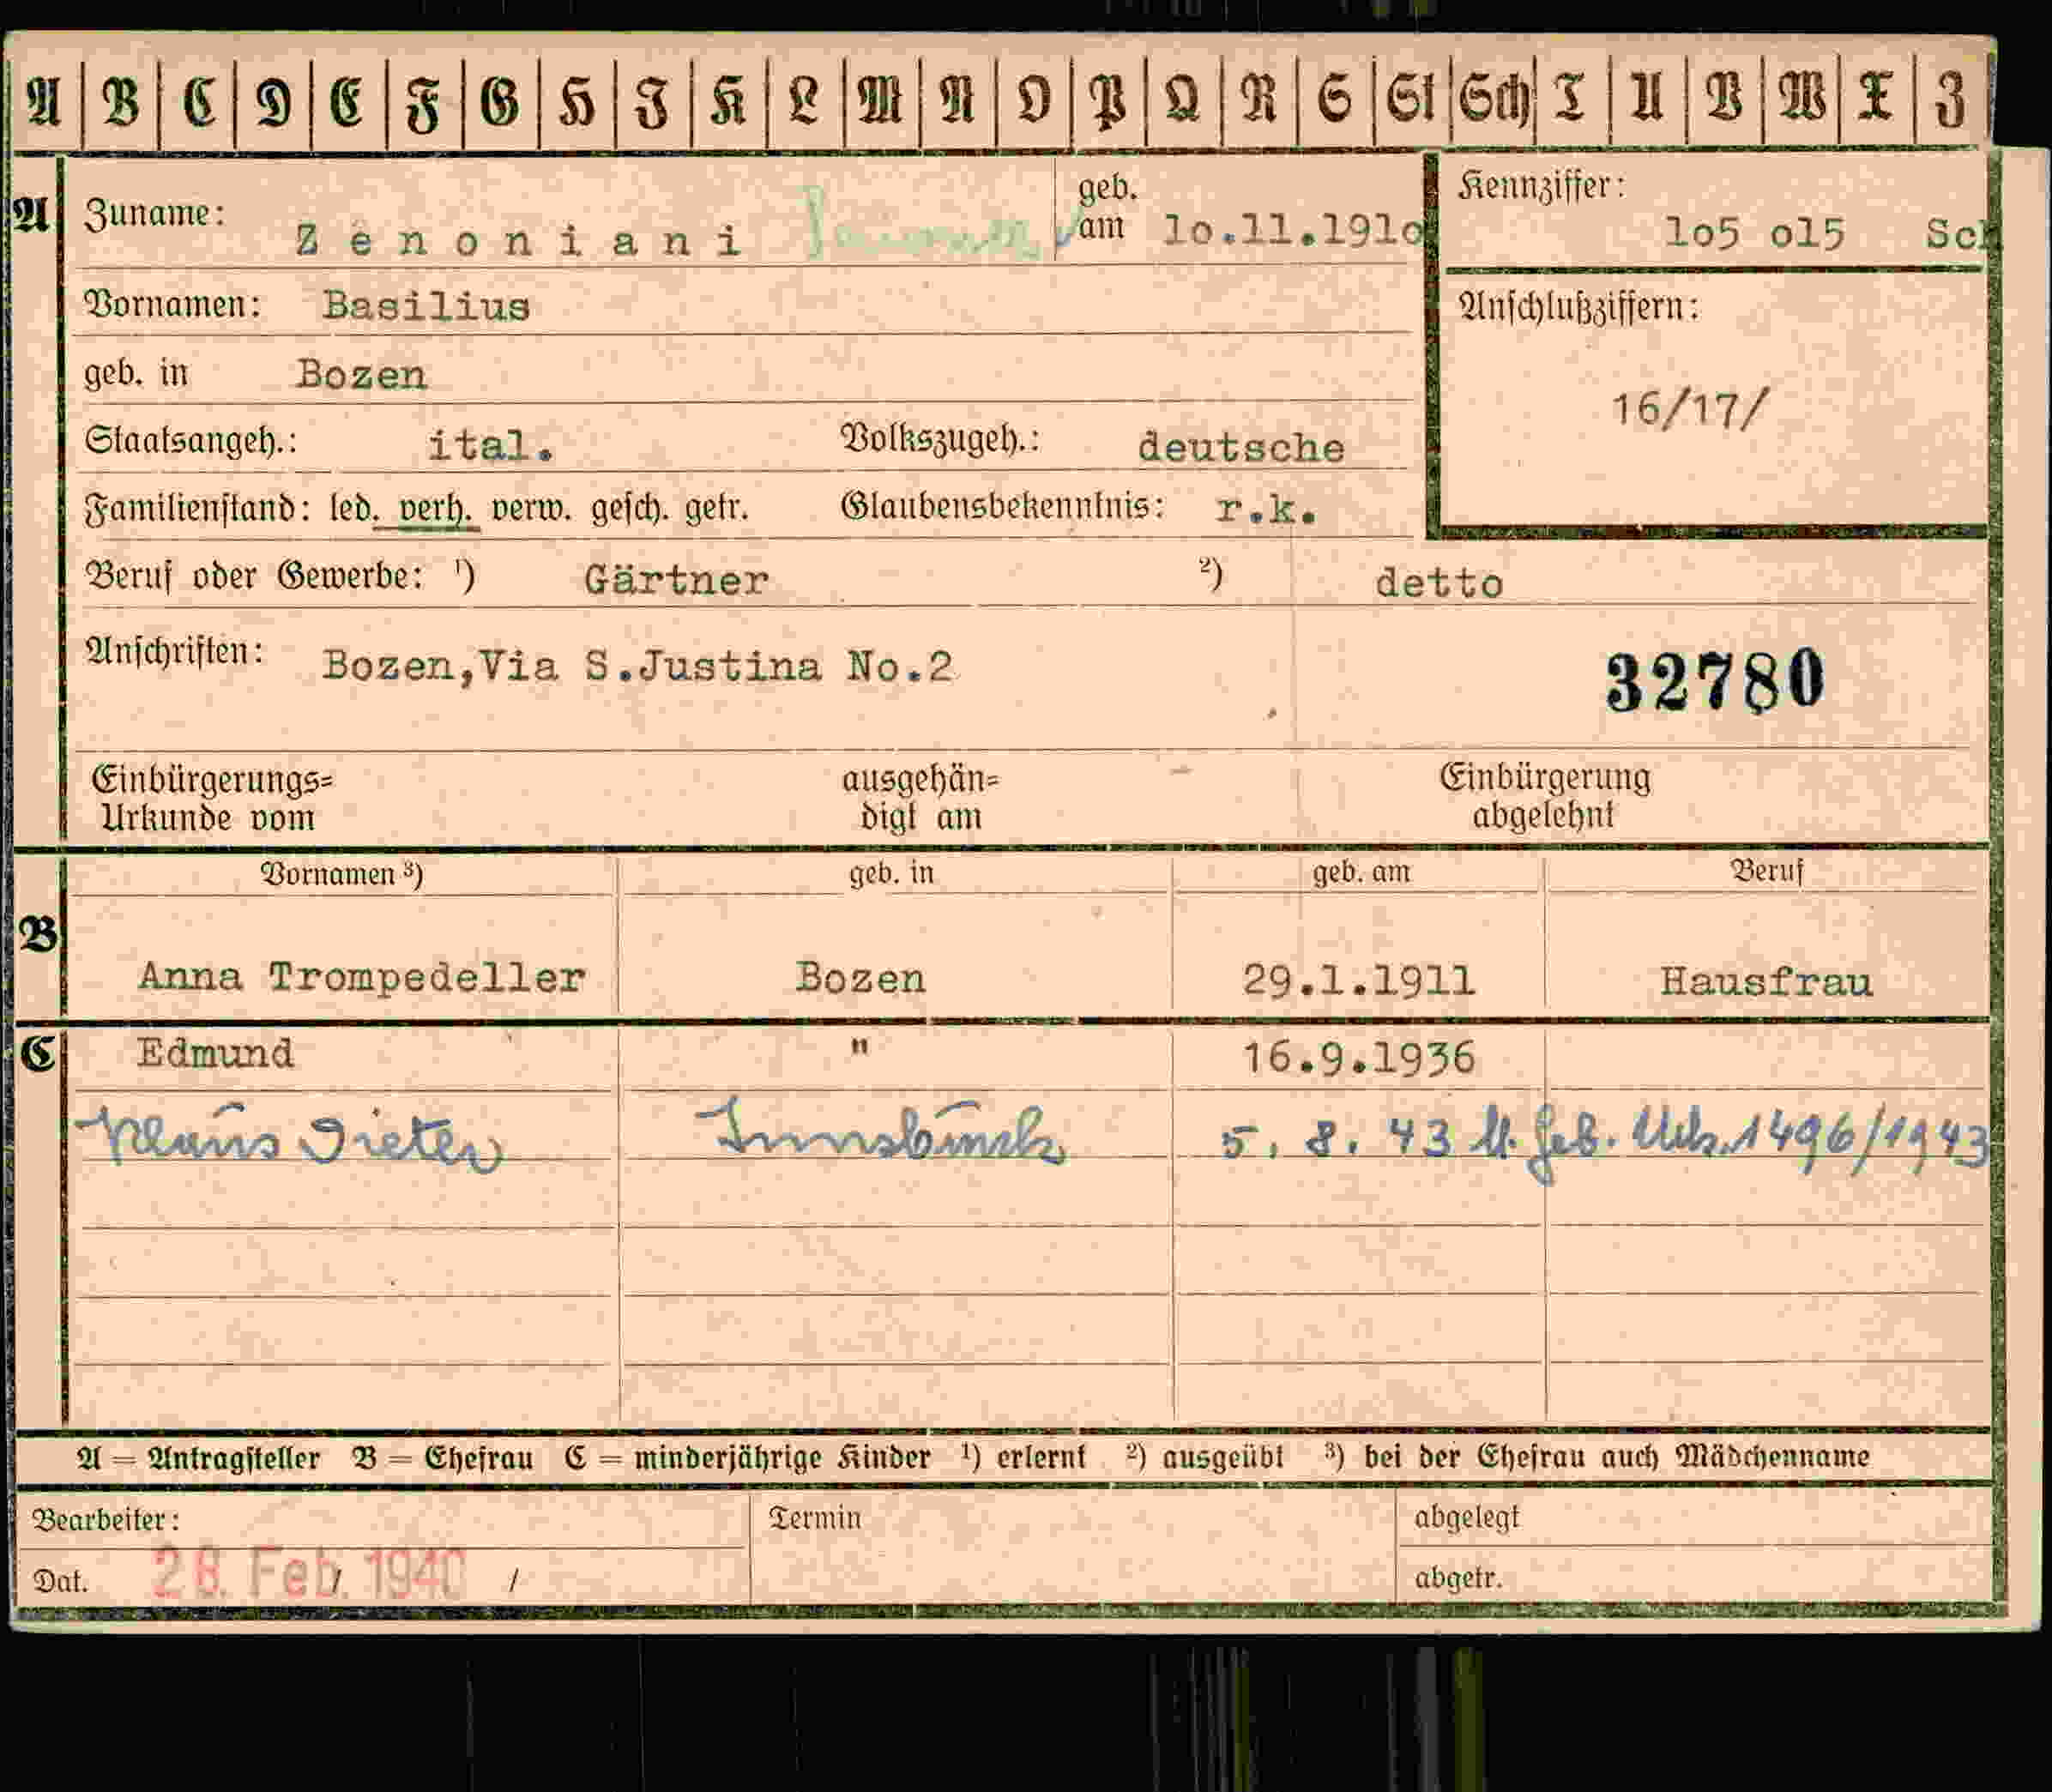 A B C D E F G H I K L M N O P Q R S St Sch T U V W X Z
A Zuname: Zenoniani geb. am 10.11.1910 Kennziffer: 105 015 Sch
Vornamen: Basilius
Anschlußziffern: 16/17/
geb. in Bozen
Staatsangeh.: ital. Volkszugeh.: deutsche
Familienstand: led. verh. verw. gesch. getr. Glaubensbekenntnis: r.k.
Beruf oder Gewerbe: ¹) Gärtner ²) detto
Anschriften: Bozen,Via S.Justina No.2
32780
Einbürgerungs= ausgehän= Einbürgerung
Urkunde vom digt am abgelehnt
Vornamen ³) geb. in geb. am Beruf
B
Anna Trompedeller Bozen 29.1.1911 Hausfrau
C Edmund " 16.9.1936
Klaus Dieter Innsbruck 5. 8. 43 lt. Geb. Urk. 1496/1943
A = Antragsteller B = Ehefrau C = minderjährige Kinder ¹) erlernt ²) ausgeübt ³) bei der Ehefrau auch Mädchenname
Bearbeiter: Termin abgelegt
Dat. 28. Feb. 1940 / abgetr.